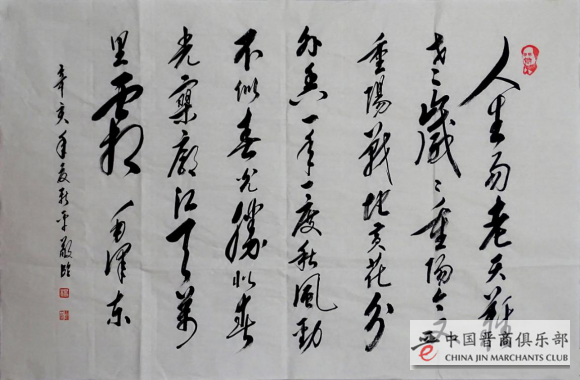 人生易老天難
老歲〻重陽今又
重陽戰地黃花分
外香一年一度秋風勁
不似春光勝似春
光寥廓江天萬
里霜 毛澤東
辛亥年夏 敬臨
中国晋商俱乐部
CHINA JIN MERCHANTS CLUB